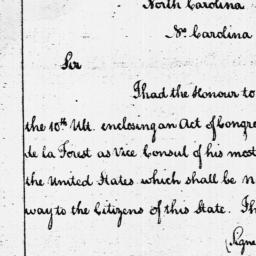 North Carolina
No. Carolina
Sir
I had the Honour to
the 10th Ult. enclosing an Act of Congre
de la Forest as Vice Consul of his most
the United States which shall be n
way to the Citizens of this State. Th
(Signe